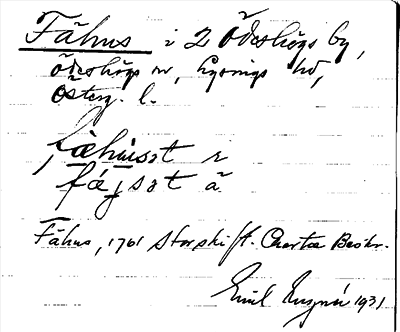 Fähus i 2 Ödeshögs by,
Ödeshögs sn, Lysings hd,
Österg. l.
fähùsət r
fä́jsət ä
Fähus, 1761 Storskift. Charta Beskr.
Emil 1931